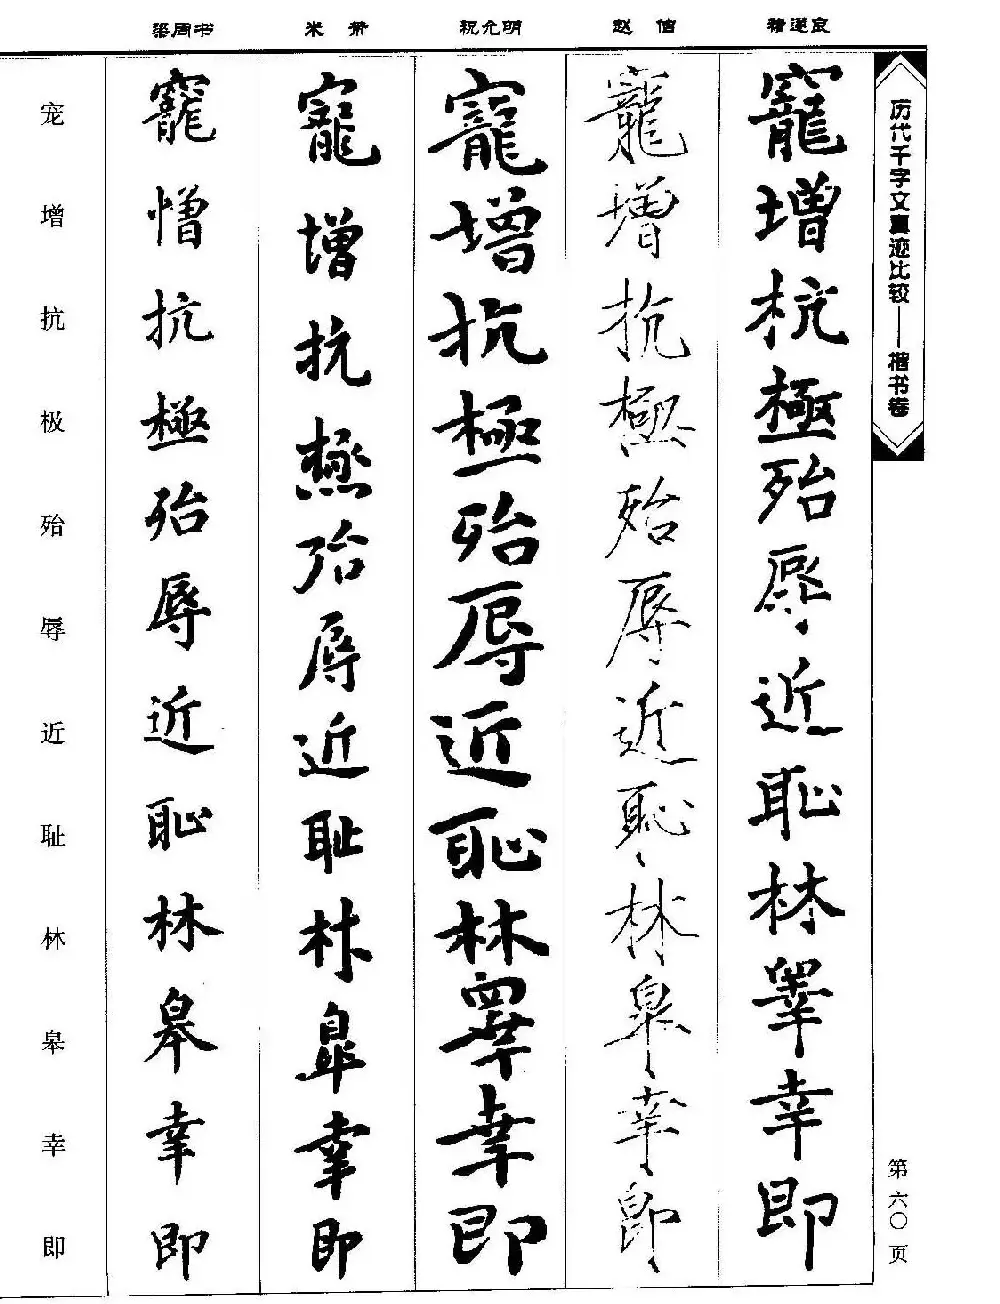 历代千字文真迹比较——楷书卷
第六〇页
褚遂良
寵增抗極殆辱近恥林睪幸即
赵佶
寵增抗極殆辱近恥林皋幸即
祝允明
寵增抗極殆辱近恥林睪幸即
米芾
寵增抗極殆辱近耻林皋幸即
梁周书
寵增抗極殆辱近恥林皋幸即
宠增抗极殆辱近耻林皋幸即